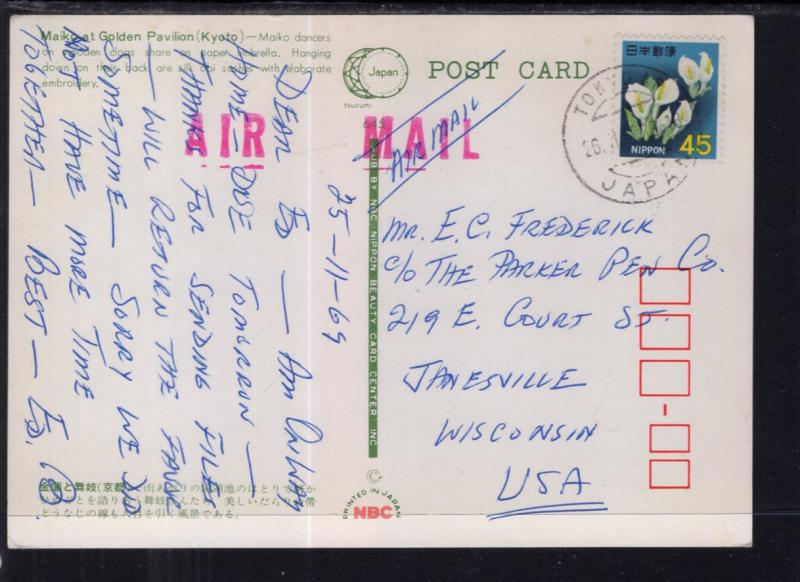 Maiko at Golden Pavilion (Kyoto) — Maiko dancers
on wooden clogs share an paper umbrella. Hanging
down on their back are silk obi sashes with elaborate
embroidery.
Japan
tsuzumi
545
POST CARD
AIR MAIL
AIR MAIL
日本郵便
NIPPON 45
TOKYO
26.
JAPAN
25-11-69
DEAR ED — AM ON WAY
HOME — DUE TOMORROW —
THANKS FOR SENDING FILM
— WILL RETURN THE FAVOR
SOMETIME — SORRY WE DID
NOT HAVE MORE TIME
TOGETHER — BEST — ED.
PUB BY NBC NIPPON BEAUTY CARD CENTER INC
MR. E.C. FREDERICK
C/O THE PARKER PEN CO.
219 E. COURT ST.
JANESVILLE
WISCONSIN
USA
金閣と舞妓(京都) 雨あがりの鏡湖池のほとりで
ひとことを語り 舞妓 さんたち、美しいだらり 帯
とうなじの線も人目を引く風景である。
C
PRINTED IN JAPAN
NBC